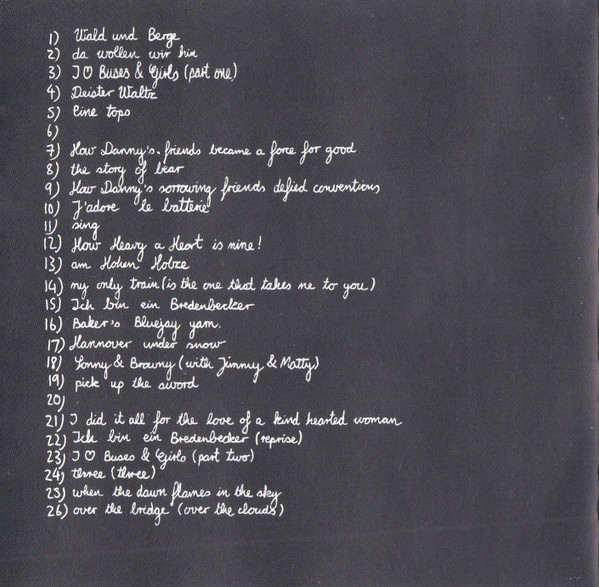 1) Wald und Berge
2) da wollen wir hin
3) I ♡ Buses & Girls (part one)
4) Deister Waltz
5) Eine tops
6)
7) How Danny's friends became a force for good
8) the story of bear
9) How Danny's sorrowing friends defied conventions
10) J'adore le batterie
11) sing
12) How Heavy a Heart is mine!
13) am Hohen Holze
14) my only train (is the one that takes me to you)
15) Ich bin ein Bredenbecker
16) Baker's Bluejay yam.
17) Hannover under snow
18) Sonny & Browny (with Jimmy & Matty)
19) pick up the sword
20)
21) I did it all for the love of a kind hearted woman
22) Ich bin ein Bredenbecker (reprise)
23) I ♡ Buses & Girls (part two)
24) three (three)
25) when the dawn flames in the sky
26) over the bridge (over the clouds)